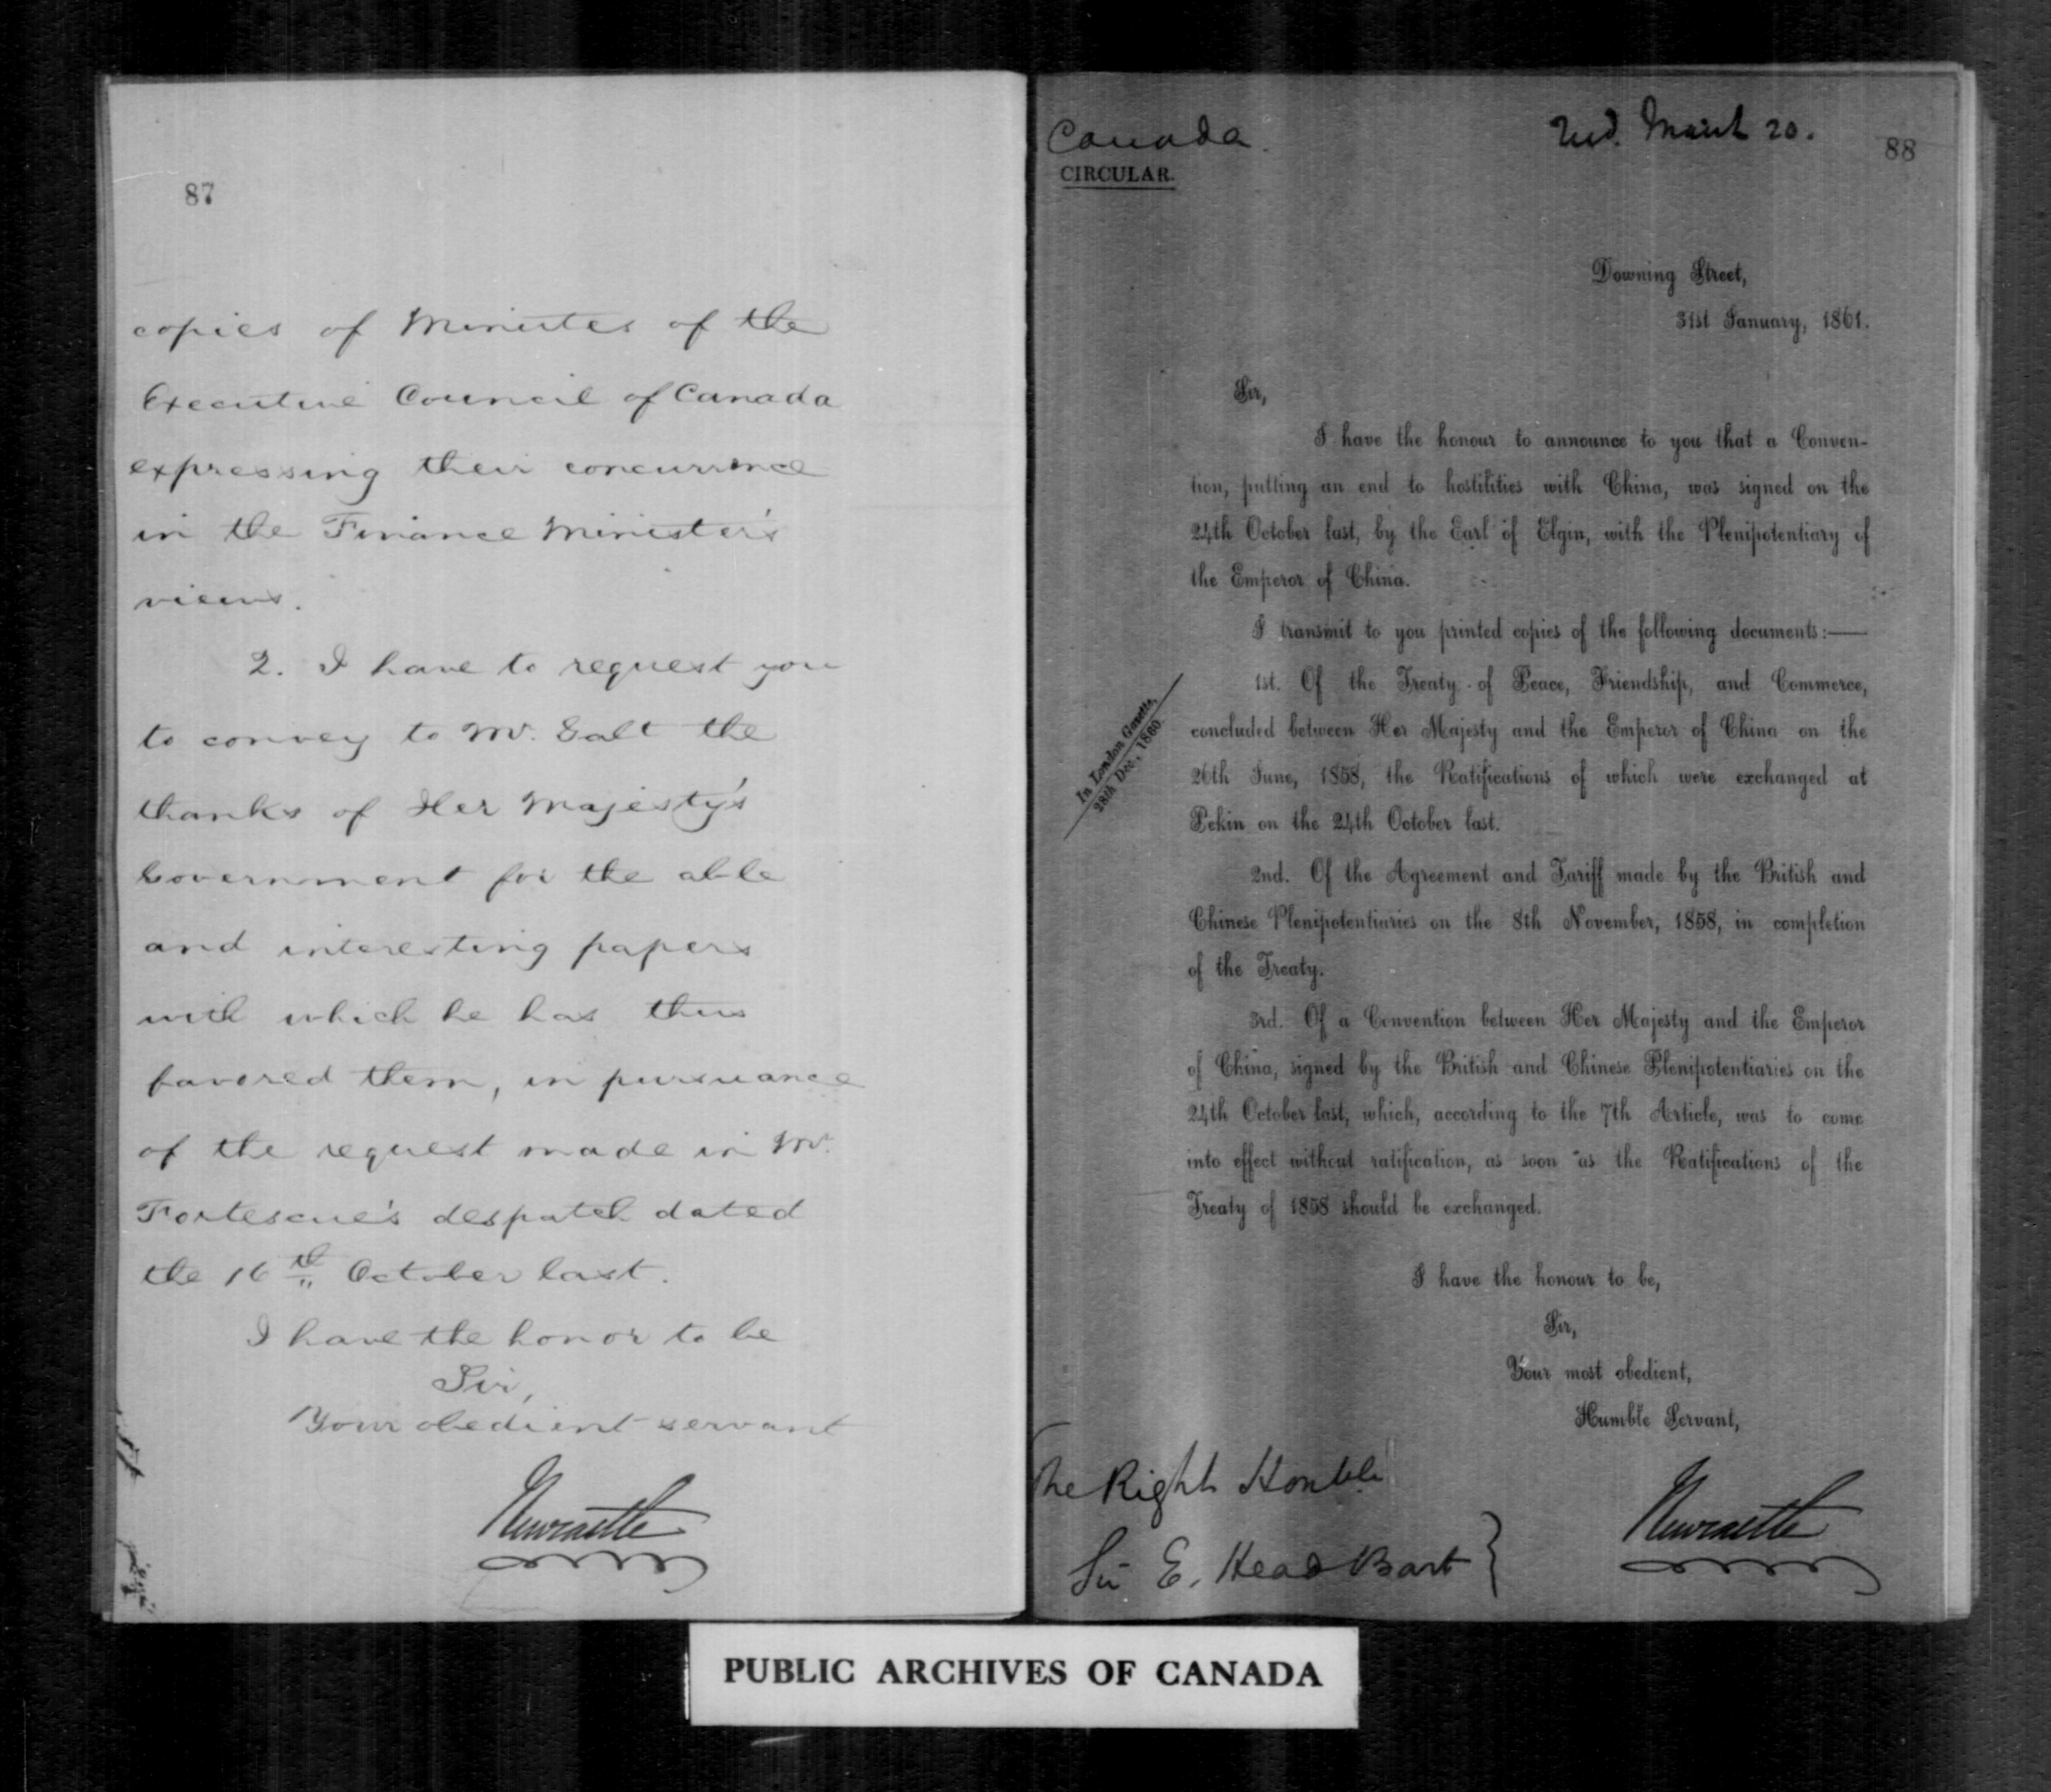 87
copies of Minutes of the
Executive Council of Canada
expressing their concurrence
in the Finance Minister's
views.
2. I have to request you
to convey to Mr. Galt the
thanks of Her Majesty's
Government for the able
and interesting papers
with which he has thus
favored them, in pursuance
of the request made in Mr.
Fortescue's despatch dated
the 16th October last.
I have the honor to be
Sir,
Your obedient servant
Newcastle
Canada.
CIRCULAR.
Recd. March 20.
88
Downing Street,
31st January, 1861.
Sir,
I have the honour to announce to you that a Conven-
tion, putting an end to hostilities with China, was signed on the
24th October last, by the Earl of Elgin, with the Plenipotentiary of
the Emperor of China.
I transmit to you printed copies of the following documents:—
In London Gazette,
28th Dec., 1860.
1st. Of the Treaty of Peace, Friendship, and Commerce,
concluded between Her Majesty and the Emperor of China on the
26th June, 1858, the Ratifications of which were exchanged at
Pekin on the 24th October last.
2nd. Of the Agreement and Tariff made by the British and
Chinese Plenipotentiaries on the 8th November, 1858, in completion
of the Treaty.
3rd. Of a Convention between Her Majesty and the Emperor
of China, signed by the British and Chinese Plenipotentiaries on the
24th October last, which, according to the 7th Article, was to come
into effect without ratification, as soon as the Ratifications of the
Treaty of 1858 should be exchanged.
I have the honour to be,
Sir,
Your most obedient,
Humble Servant,
Newcastle
The Right Honble
Sir E. Head Bart
PUBLIC ARCHIVES OF CANADA